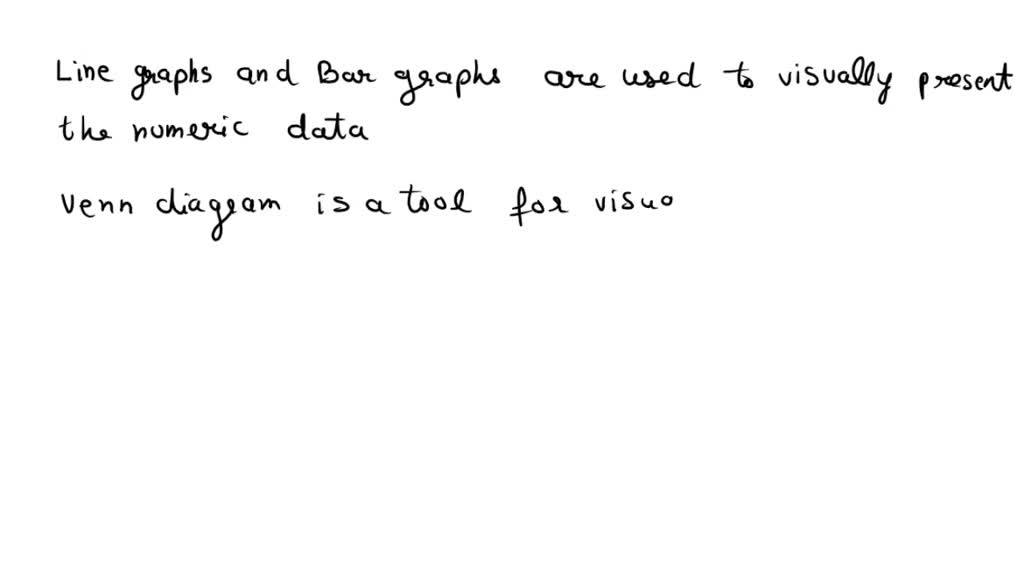 Line graphs and Bar graphs are used to visually present
the numeric data
Venn diagram is a tool for visuo